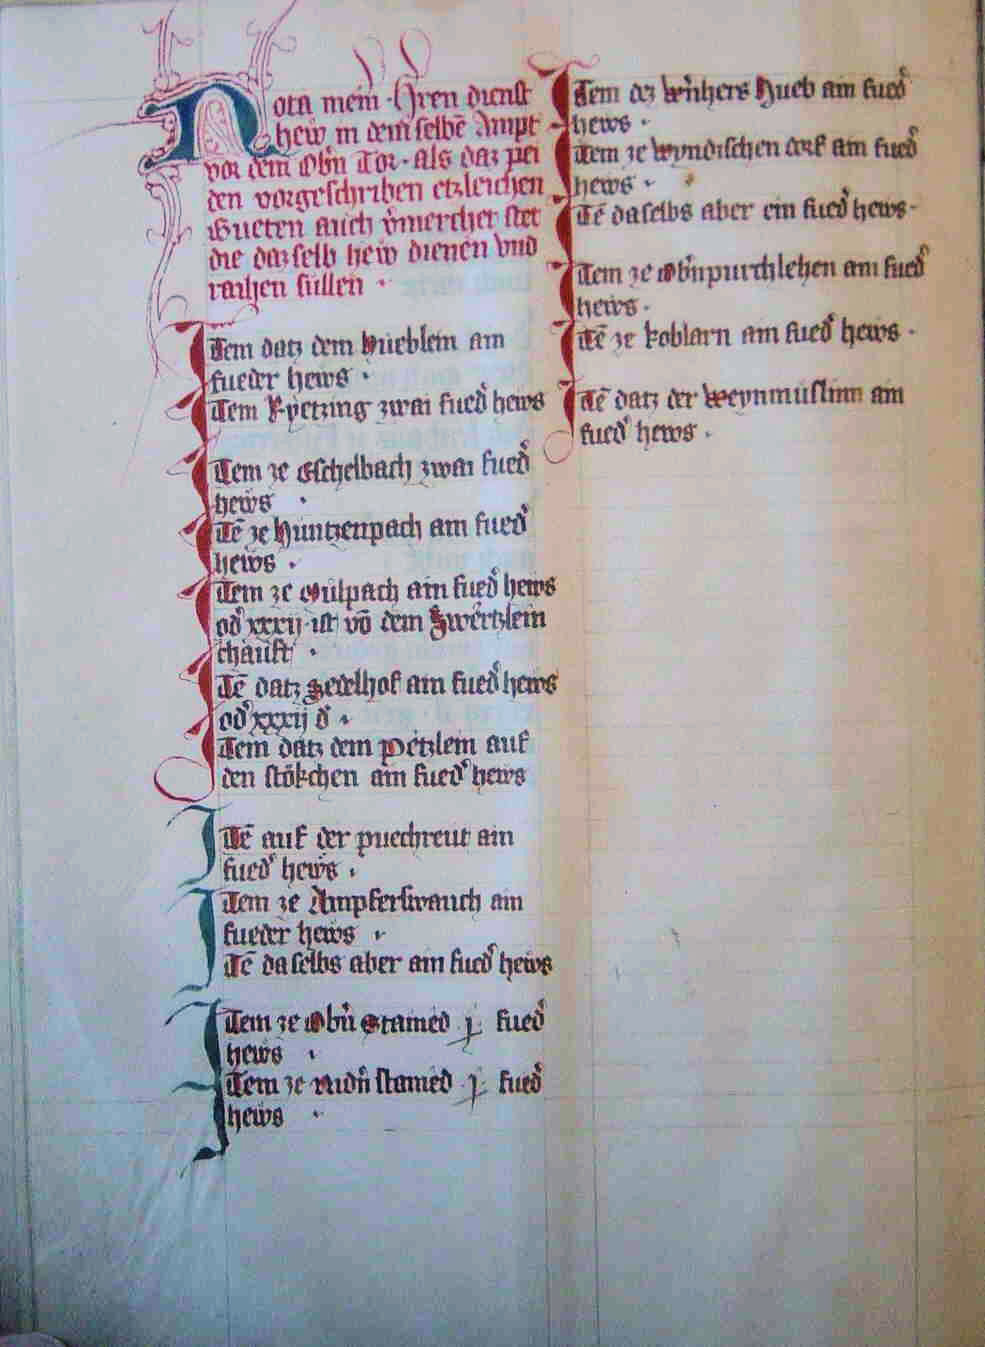 Nota mein · Hren dienst
hew in dem selbē Ampt
vor dem Obn̄ Tor · als daz pei
den vorgeschriben etzleichen
Gueten auch v̄mercher stet
die dazselb hew dienen vnd
raihen sullen ·
Item datz dem hueblein ain
fueder hews ·
Item Kyetzing zwai fued᷑ hews
Item ze Eschelbach zwai fued᷑
hews ·
Itē ze Huntzenpach ain fued᷑
hews ·
Item ze Mulpach ain fued᷑ hews
od᷑ xxxij · ist vō dem Swertzlein
chauft ·
Itē datz Sedelhof ain fued᷑ hews
od᷑ xxxij d ·
Item datz dem Petzlein auf
den stökchen ain fued᷑ hews
Itē auf der puechreut ain
fued᷑ hews ·
Item ze Ampferswanch ain
fueder hews ·
Itē daselbs aber ain fued᷑ hews
Item ze Obn̄ Stamed j fued᷑
hews ·
Item ze nidn̄ stamed · j · fued᷑
hews ·
Item dez Wn̄hers Hueb ain fued᷑
hews ·
Item ze wyndischen dorf ain fued᷑
hews ·
Itē daselbs aber ein fued᷑ hews ·
Item ze Obn̄purchlehen ain fued᷑
hews ·
Itē ze koblarn ain fued᷑ hews ·
Itē datz der Weynmuslinn ain
fued᷑ hews ·